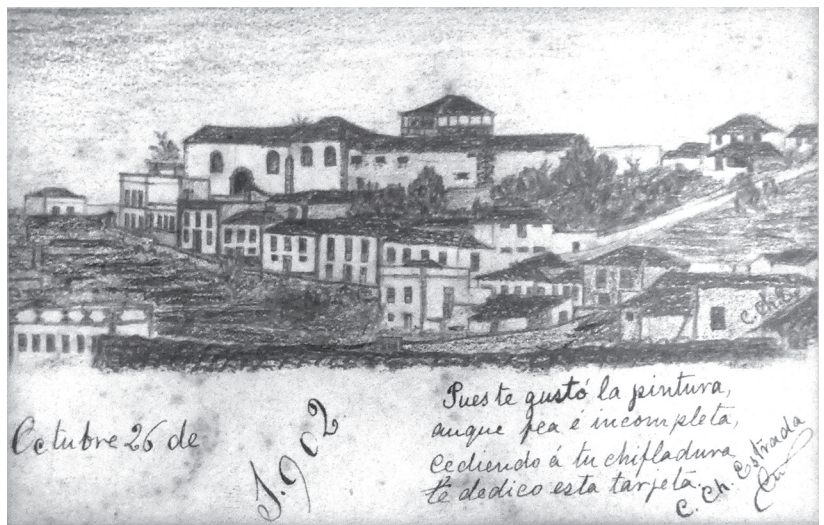 Octubre 26 de
1.902
Pues te gustó la pintura,
auque fea é incompleta,
cediendo á tu chifladura
te dedico esta tarjeta.
C. Ch. Estrada